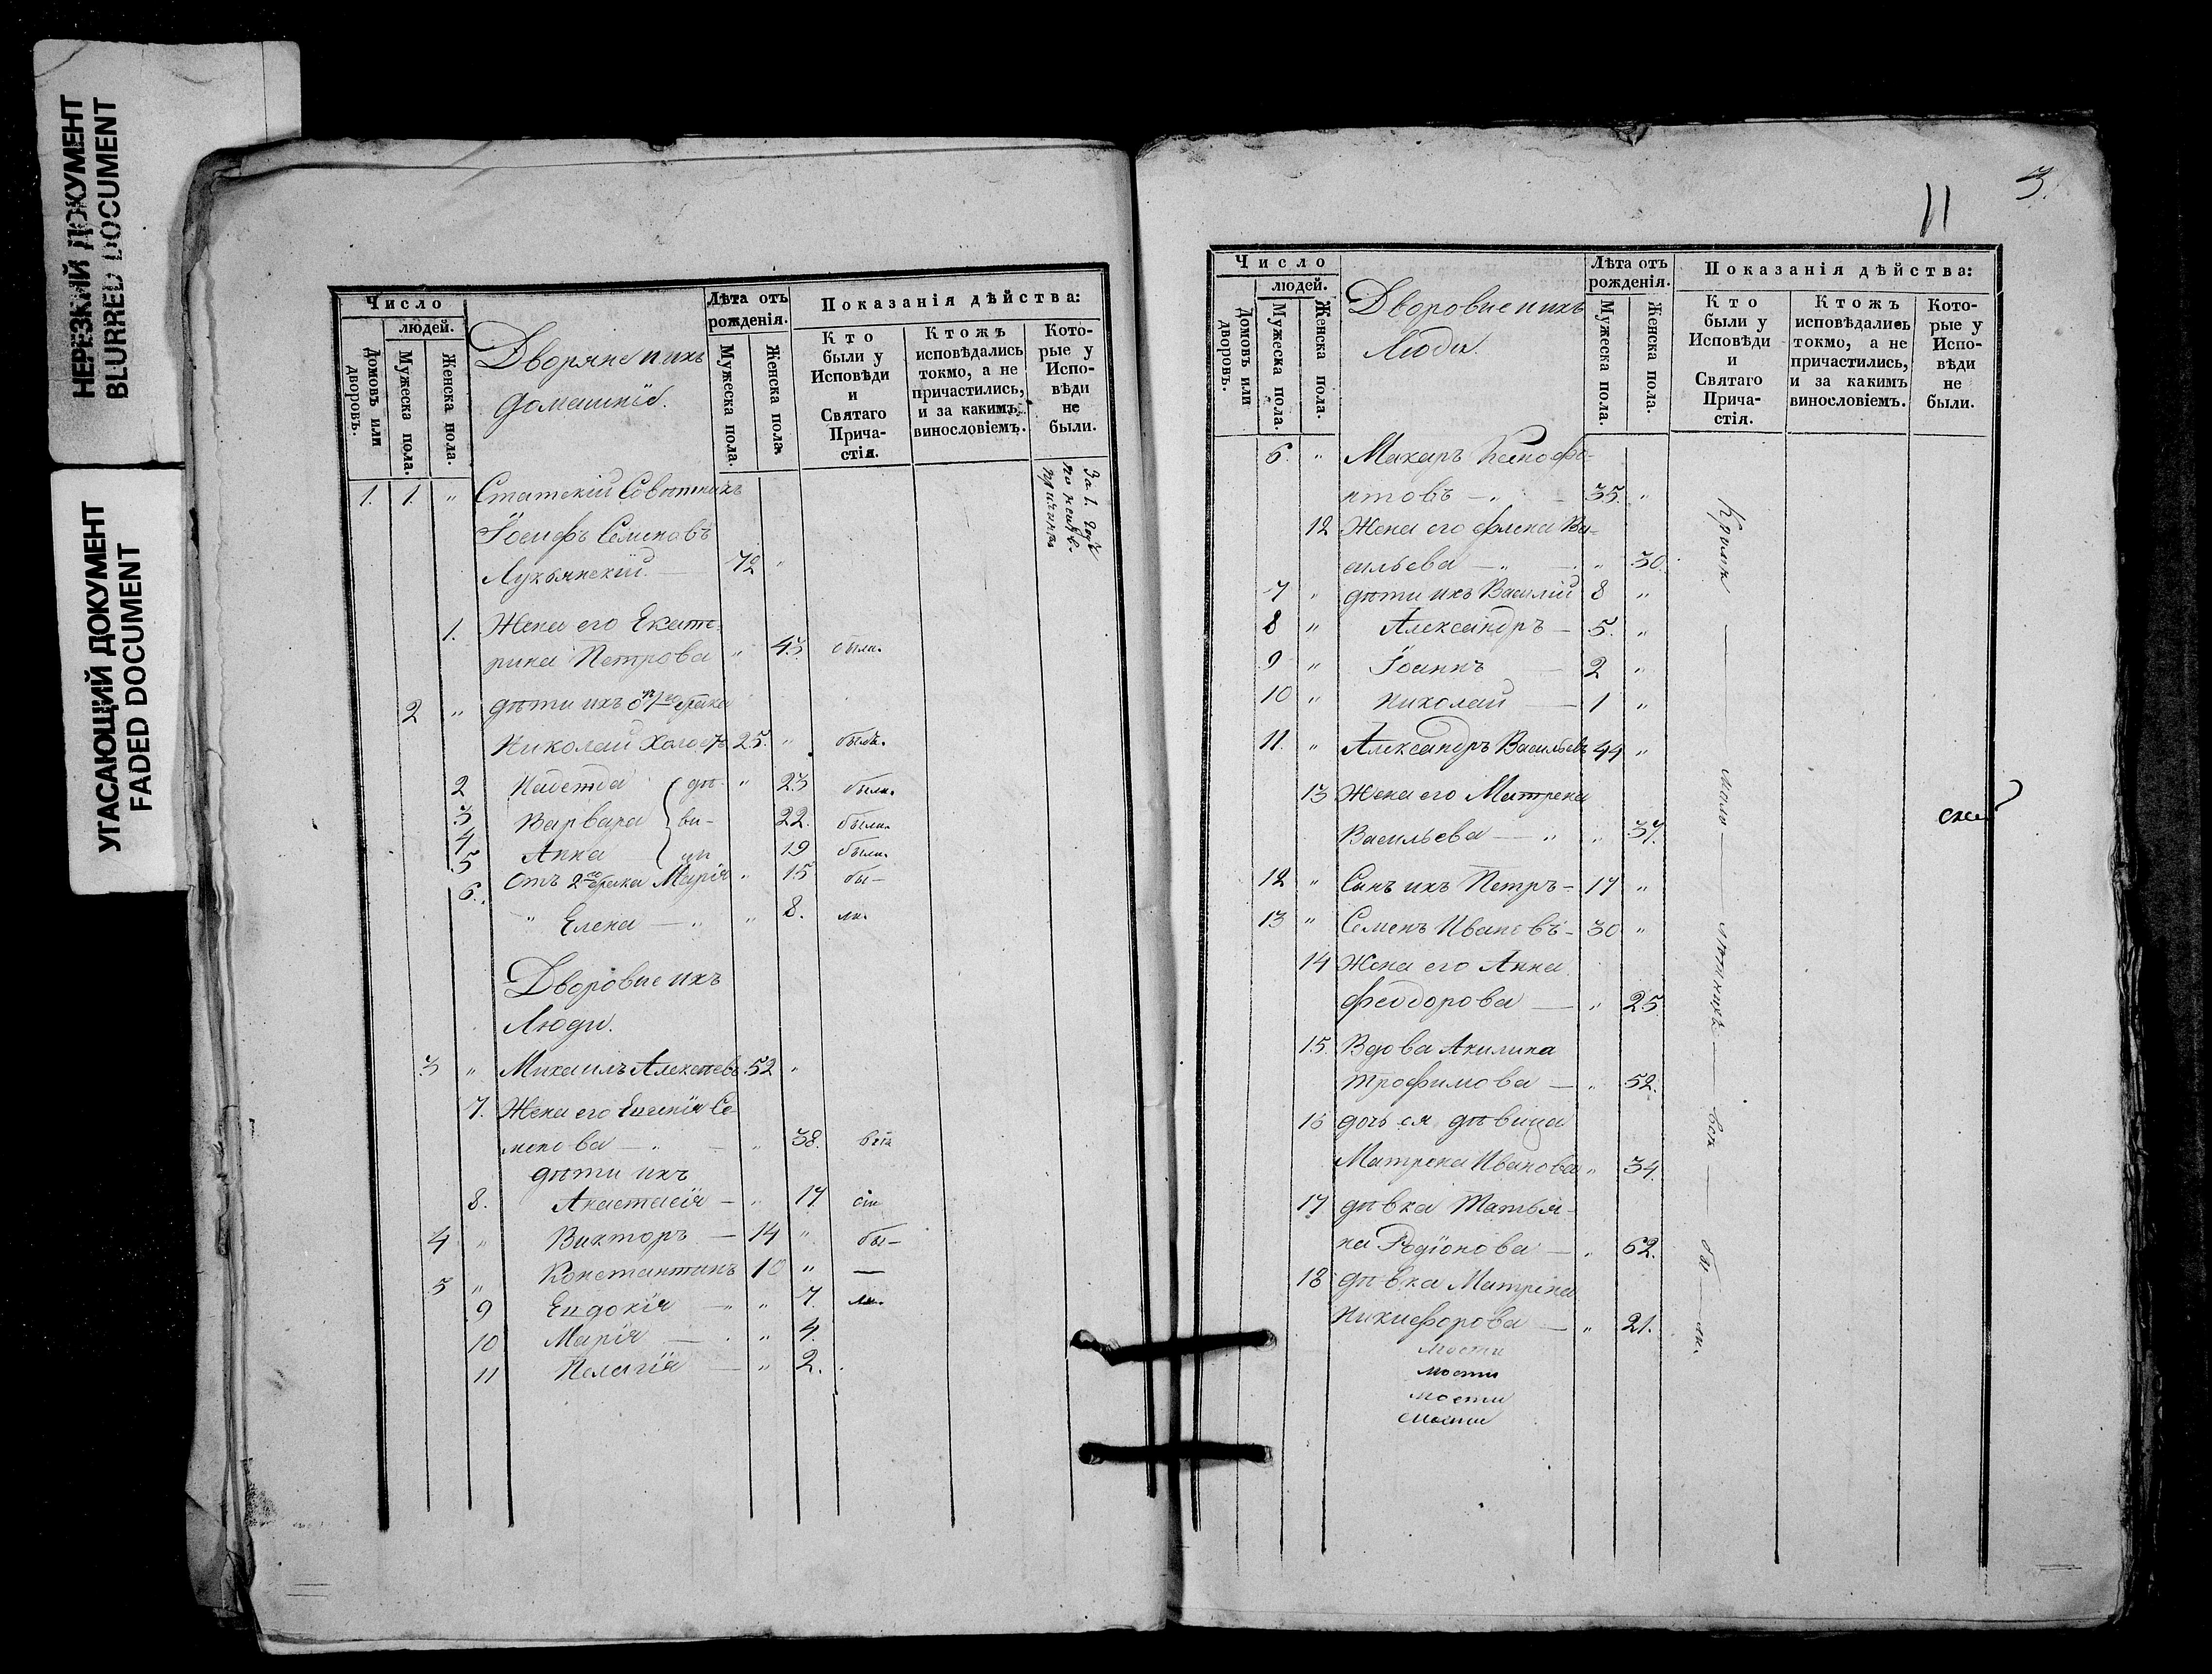 НЕРЕЗКИЙ ДОКУМЕНТ
BLURRED DOCUMENT
УГАСАЮЩИЙ ДОКУМЕНТ
FADED DOCUMENT
Число
людей.
Домовъ или дворовъ.
Мужеска пола.
Женска пола.
Дворяне и ихъ
домашніе.
Лѣта отъ рожденія.
Мужеска пола.
Женска пола.
Показанія дѣйства:
Кто были у Исповѣди и Святаго Причастія.
Ктожъ исповѣдались токмо, а не причастились, и за какимъ винословіемъ.
Которые у Исповѣди не были.
1. 1. " Статскій Совѣтникъ
Іосифъ Семеновъ
Лукьянскій. — 72 "
За 1. годъ
по неизв.
1. Жена его Екате-
рина Петрова " 43. были.
2 " дѣти ихъ отъ 1го брака
Николай Холостъ 25. " былъ.
2 Надежда дѣ- " 23 были.
3 Варвара ви- 22. были.
4 Анна цы 19 были.
5 Отъ 2го брака Марія " 15 бы-
6. " Елена — " " 8. ли.
Дворовые ихъ
Люди.
3 " Михаилъ Алексѣевъ 52 "
7. Жена его Евгенія Се-
менова — " 38. всѣ
дѣти ихъ
8. Анастасія — " 17. сіи
4 " Викторъ — 14 " бы-
5 " Константинъ 10 " —
9 Евдокія — " 7. ли.
10 Марія — " 4.
11 Пелагія — " 2.
3.
11
Число
людей.
Домовъ или дворовъ.
Мужеска пола.
Женска пола.
Дворовые ихъ
Люди.
Лѣта отъ рожденія.
Мужеска пола.
Женска пола.
Показанія дѣйства:
Кто были у Исповѣди и Святаго Причастія.
Ктожъ исповѣдались токмо, а не причастились, и за какимъ винословіемъ.
Которые у Исповѣди не были.
6. " Макаръ Ксенофо-
нтовъ — " 35. "
12 Жена его Елена Ва-
сильева — " " 30.
7 " дѣти ихъ Василій 8 "
8 " Александръ — 5. "
9 " Іоаннъ — 2 "
10 " Николай — 1 "
11. " Александръ Васильевъ 44 "
13 Жена его Матрена
Васильева — " " 37.
12 " Сынъ ихъ Петръ - 17 "
13 " Семенъ Ивановъ - 30 "
14 Жена его Анна
Феодорова — " 25.
15. Вдова Акилина
Трофимова — " 52.
16 дочь ея дѣвица
Матрена Иванова " 34.
17 дѣвка Татья-
на Родіонова — " 62.
18 дѣвка Матрена
Никифорова — " 21.
Кромѣ — мало — лѣтнихъ — всѣ — бы — ли.
мости
мости
мости